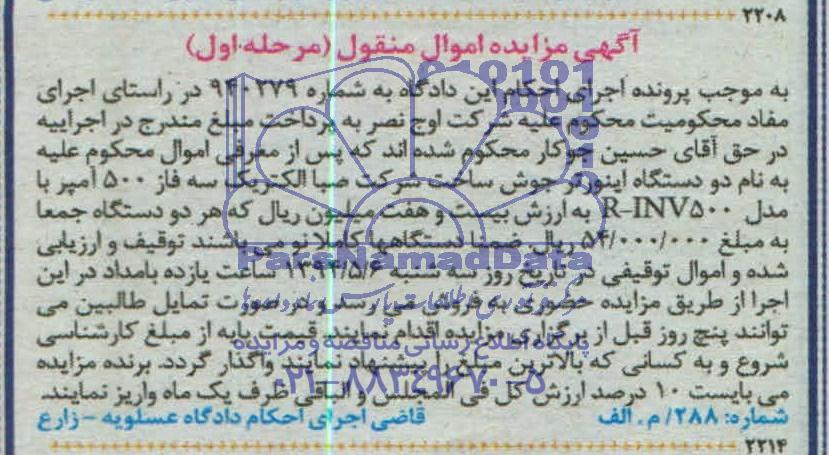 ۲۲۰۸
آگهی مزایده اموال منقول (مرحله اول)
به موجب پرونده اجرای احکام این دادگاه به شماره ۹۴۰۲۷۹ در راستای اجرای
مفاد محکومیت محکوم علیه شرکت اوج نصر به پرداخت مبلغ مندرج در اجراییه
در حق آقای حسین جوکار محکوم شده اند که پس از معرفی اموال محکوم علیه
به نام دو دستگاه اینورتر جوش ساخت شرکت صبا الکتریک سه فاز ۵۰۰ آمپر با
مدل R-INV۵۰۰ به ارزش بیست و هفت میلیون ریال که هر دو دستگاه جمعا
به مبلغ ۵۴/۰۰۰/۰۰۰ ریال ضمنا دستگاهها کاملا نو می باشند توقیف و ارزیابی
شده و اموال توقیفی در تاریخ روز سه شنبه ۱۳۹۴/۵/۶ ساعت یازده بامداد در این
اجرا از طریق مزایده حضوری به فروش می رسد و در صورت تمایل طالبین می
توانند پنج روز قبل از برگزاری مزایده اقدام نمایند قیمت پایه از مبلغ کارشناسی
شروع و به کسانی که بالاترین مبلغ را پیشنهاد نمایند واگذار گردد. برنده مزایده
می بایست ۱۰ درصد ارزش کل فی المجلس و الباقی ظرف یک ماه واریز نمایند.
شماره: ۲۸۸/ م. الف
قاضی اجرای احکام دادگاه عسلویه - زارع
۲۲۱۴
ParsNamadData
پایگاه اطلاع رسانی مناقصه و مزایده
۰۲۱-۸۸۳۴۹۶۷۰-۵